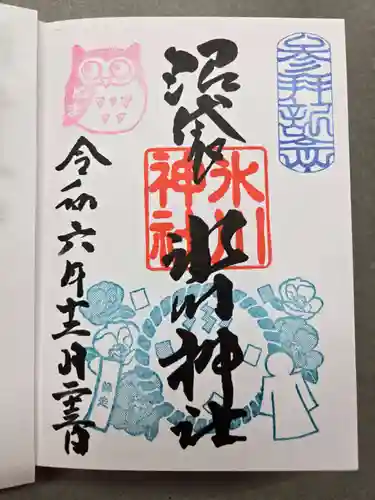 参拝記念
沼袋
氷川神社
氷川
神社
令和六年十二月二十三日